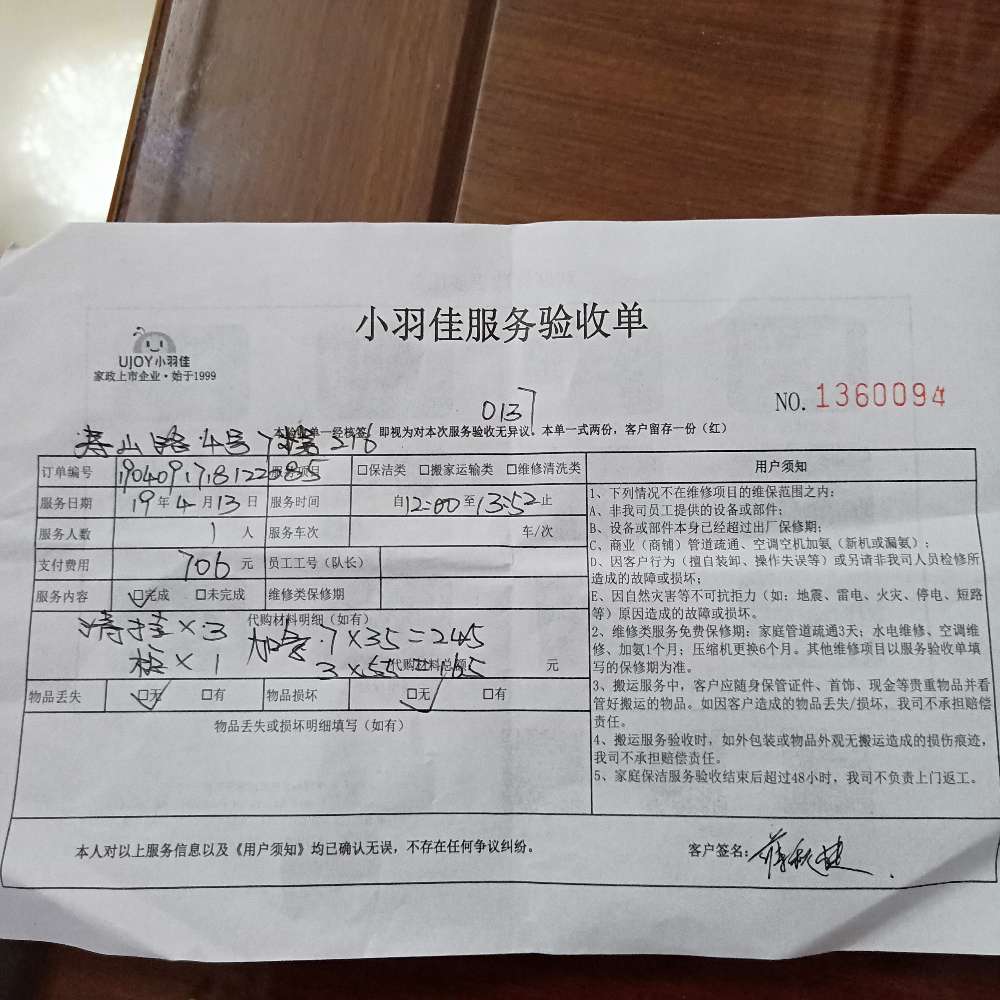 小羽佳服务验收单
UJOY小羽佳
家政上市企业·始于1999
NO. 1360094
0137
本验收单一经核签,即视为对本次服务验收无异议。本单一式两份,客户留存一份(红)
山路4号 216
订单编号 190409171812 服务项目 □保洁类 □搬家运输类 □维修清洗类
服务日期 19年4月13日 服务时间 自12:00至13:52止
服务人数 1人 服务车次 车/次
支付费用 706元 员工工号(队长)
服务内容 □完成 □未完成 维修类保修期
代购材料明细(如有)
清挂×3 加 7×35=245
柜×1 3×55=165
代购材料总额 元
物品丢失 □无 □有 物品损坏 □无 □有
物品丢失或损坏明细填写(如有)
用户须知
1、下列情况不在维修项目的维保范围之内:
A、非我司员工提供的设备或部件;
B、设备或部件本身已经超过出厂保修期;
C、商业(商铺)管道疏通、空调空机加氨(新机或漏氨);
D、因客户行为(擅自装卸、操作失误等)或另请非我司人员检修所
造成的故障或损坏;
E、因自然灾害等不可抗拒力(如:地震、雷电、火灾、停电、短路
等)原因造成的故障或损坏。
2、维修类服务免费保修期:家庭管道疏通3天;水电维修、空调维
修、加氨1个月;压缩机更换6个月。其他维修项目以服务验收单填
写的保修期为准。
3、搬运服务中,客户应随身保管证件、首饰、现金等贵重物品并看
管好搬运的物品。如因客户造成的物品丢失/损坏,我司不承担赔偿
责任。
4、搬运服务验收时,如外包装或物品外观无搬运造成的损伤痕迹,
我司不承担赔偿责任。
5、家庭保洁服务验收结束后超过48小时,我司不负责上门返工。
本人对以上服务信息以及《用户须知》均已确认无误,不存在任何争议纠纷。
客户签名: